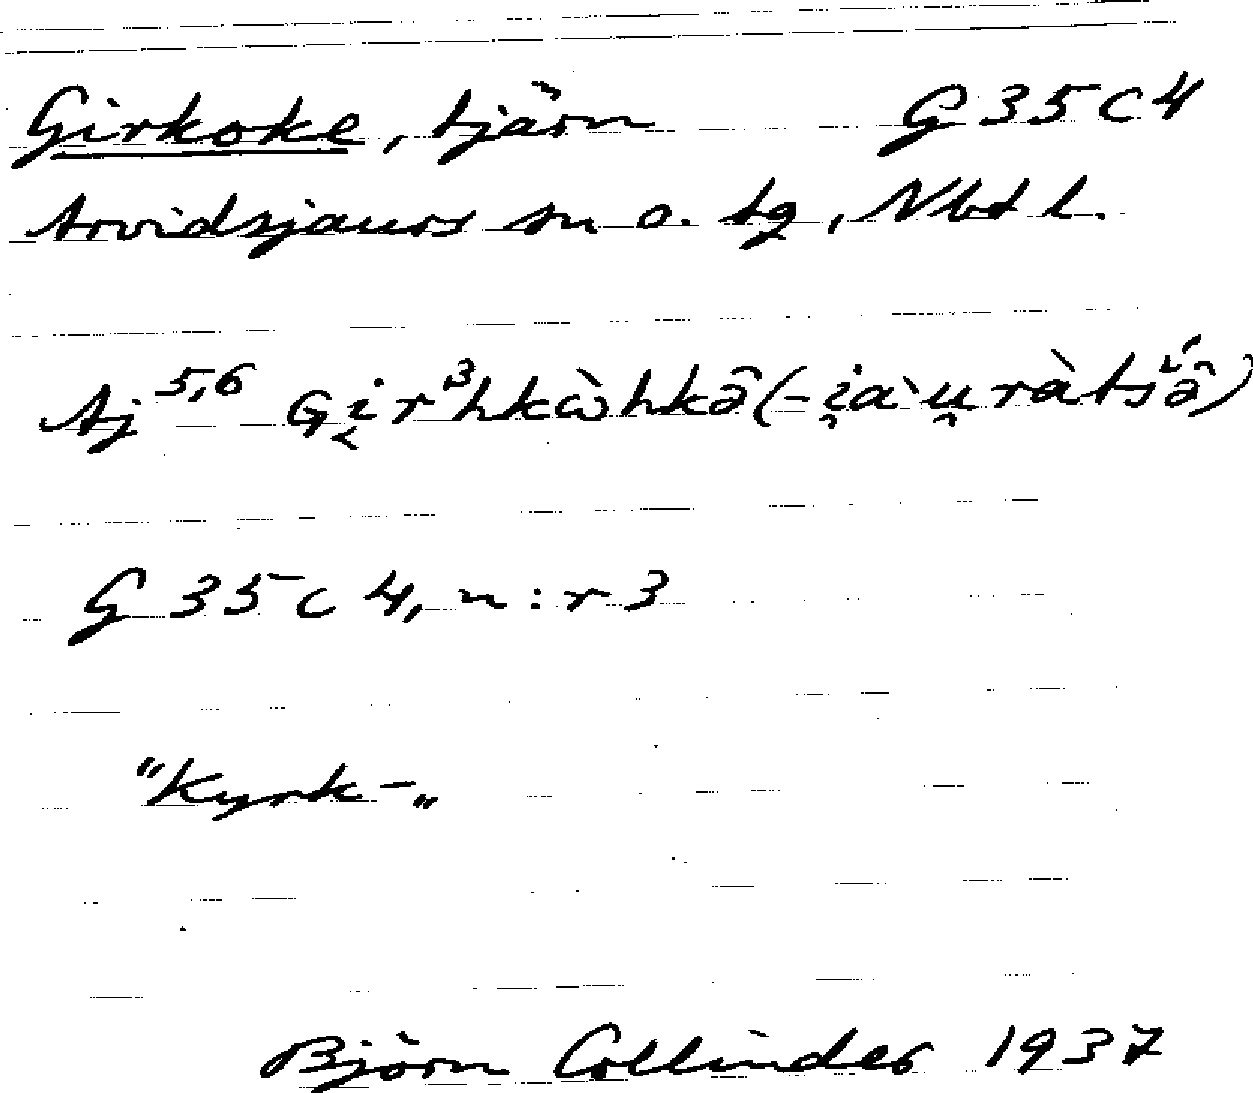 Girkoke, tjärn G 35 C 4
Arvidsjaurs sn o. tg, Nbd l.
Aj 5,6 Gi̭r³hkɷ̀hkâ(-i̯a`u̯ràtsấ)
G 35 C 4, n:r 3
"Kyrk-„
Björn Collinder 1937